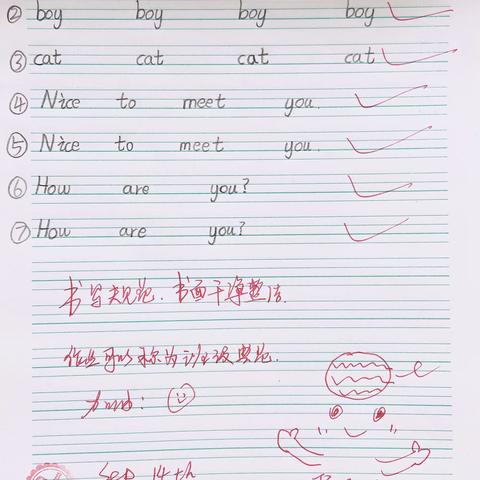 ② boy boy boy boy
③ cat cat cat cat
④ Nice to meet you.
⑤ Nice to meet you.
⑥ How are you?
⑦ How are you?
书写规范.书面干净整洁.
作业可以称为班级典范.
加油:
Sep 14th